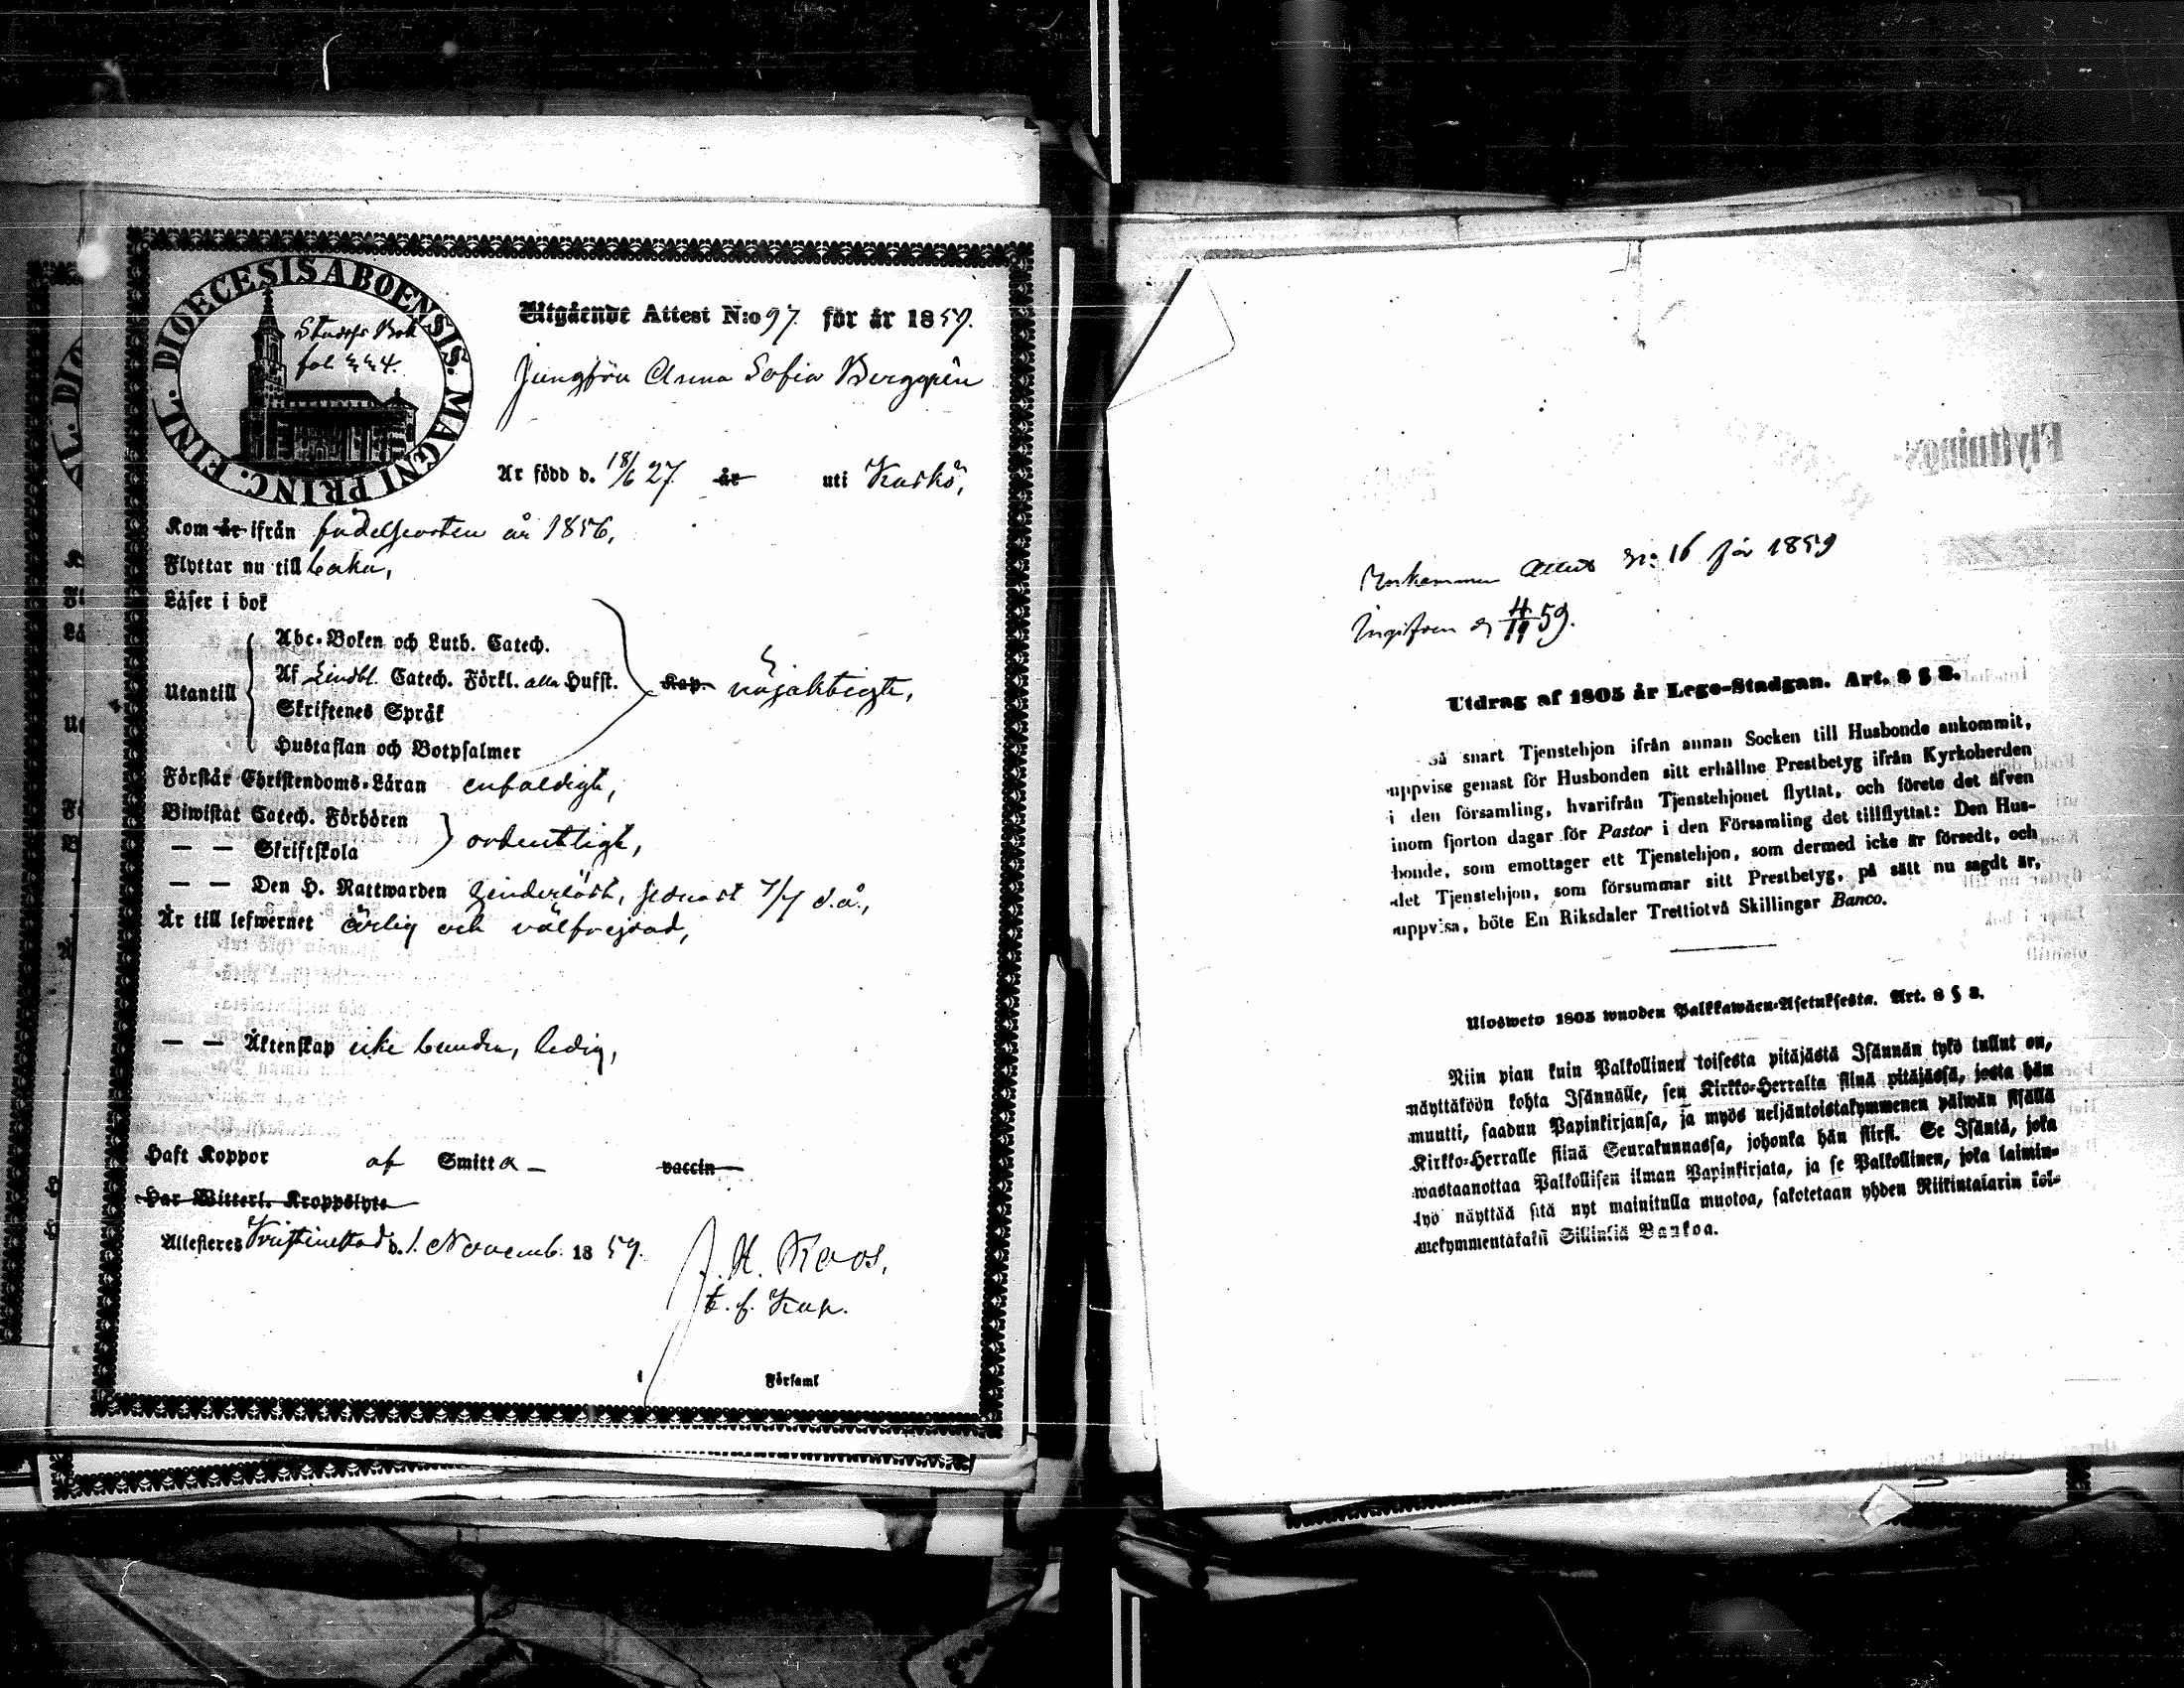 DIOECESIS ABOENSIS. MAGNI PRINC. FINL.
Bok
fol. 224.
Utgående Attest N:o 97. för år 1859.
Jungfrun Anna Sofia Berggrén
Är född d. 18/6 27. år uti Kaskö,
Kom år ifrån födelseorten år 1856,
Flyttar nu till baka,
Läser i bok
Utantill
Abc-Boken och Luth. Catech.
Af Lindbl. Catech. Förkl. alla Hufst. Kap. nöjaktigt,
Skriftenes Språk
Hustaflan och Botpsalmer
Förstår Christendoms-Läran enfaldigt,
Biwistat Catech. Förhören
— — Skriftskola ordentligt,
— — Den H. Nattwarden hinderlöst, senast 7/7 d.å.,
Är till lefwernet ärlig och välfrejdad,
— — Äktenskap icke bunden, ledig,
Haft Koppor af Smitta – vaccin
Har Witterl. Kroppslyte
Attesteres Kristinestad d. 1. Novemb. 1859.
J. A. Roos.
t. f. Kap.
Församl
Flyttnings-
Inkommen Attest N: 16 för 1859
Ingifven d 59.
Utdrag af 1805 år Lego-Stadgan. Art. 8 § 2.
Så snart Tjenstehjon ifrån annan Socken till Husbonde ankommit,
uppvise genast för Husbonden sitt erhållne Prestbetyg ifrån Kyrkoherden
i den församling, hvarifrån Tjenstehjonet flyttat, och förete det äfven
inom fjorton dagar för Pastor i den Församling det tillflyttat: Den Hus-
bonde, som emottager ett Tjenstehjon, som dermed icke är försedt, och
det Tjenstehjon, som försummar sitt Prestbetyg, på sätt nu sagdt är,
uppvisa, böte En Riksdaler Trettiotvå Skillingar Banco.
Ulosweto 1805 wuoden Palkkawäen-Asetuksesta. Art. 8 § 2.
Niin pian kuin Palkollinen toisesta pitäjästä Isännän tykö tullut on,
näyttäköön kohta Isännälle, sen Kirkko-Herralta siinä pitäjässä, josta hän
muutti, saadun Papinkirjansa, ja myös neljäntoistakymmenen päiwän sisällä
Kirkko-Herralle siinä Seurakunnassa, johonka hän siirsi. Se Isäntä, joka
wastaanottaa Palkollisen ilman Papinkirjata, ja se Palkollinen, joka laimin-
lyö näyttää sitä nyt mainitulla muotoa, sakotetaan yhden Riikintalarin kol-
mekymmentäkaksi Sillinkiä Bankoa.